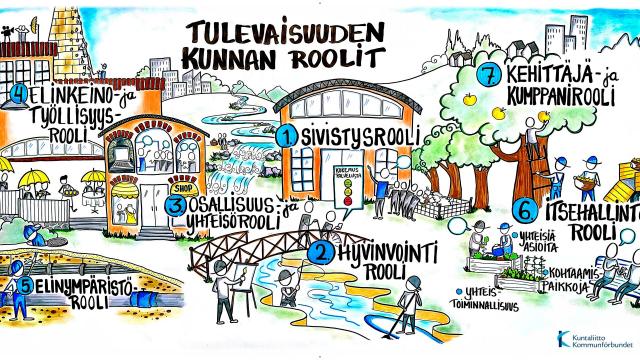 TULEVAISUUDEN
KUNNAN ROOLIT
4 ELINKEINO- ja
TYÖLLISYYS-
ROOLI
1 SIVISTYSROOLI
7 KEHITTÄJÄ- ja
KUMPPANIROOLI
KOKEMUS
PALVELUISTA
SHOP
3 OSALLISUUS ja
YHTEISÖROOLI
2 HYVINVOINTI
ROOLI
6 ITSEHALLINTO
ROOLI
• YHTEISIÄ
ASIOITA
• KOHTAAMIS
PAIKKOJA
• YHTEIS-
TOIMINNALLISUUS
5 ELINYMPÄRISTÖ-
ROOLI
Kuntaliitto
Kommunförbundet